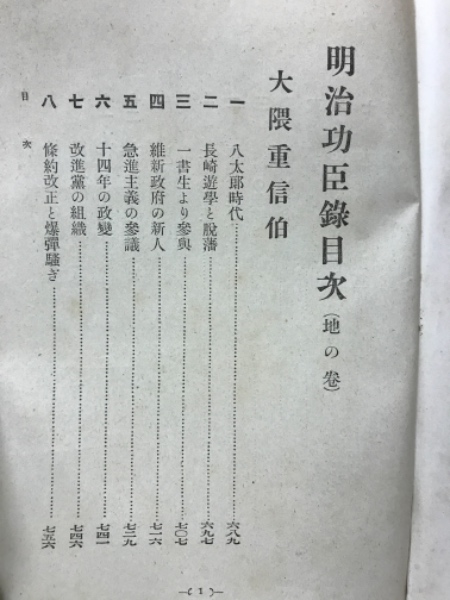 明治功臣錄目次(地の卷)
大隈重信伯
一 八太郞時代……………六八九
二 長崎遊學と脫藩……………六九七
三 一書生より參與……………七〇七
四 維新政府の新人……………七一六
五 急進主義の參議……………七二九
六 十四年の政變……………七四一
七 改進黨の組織……………七四六
八 條約改正と爆彈騷ぎ……………七五六
目次
—( 1 )—